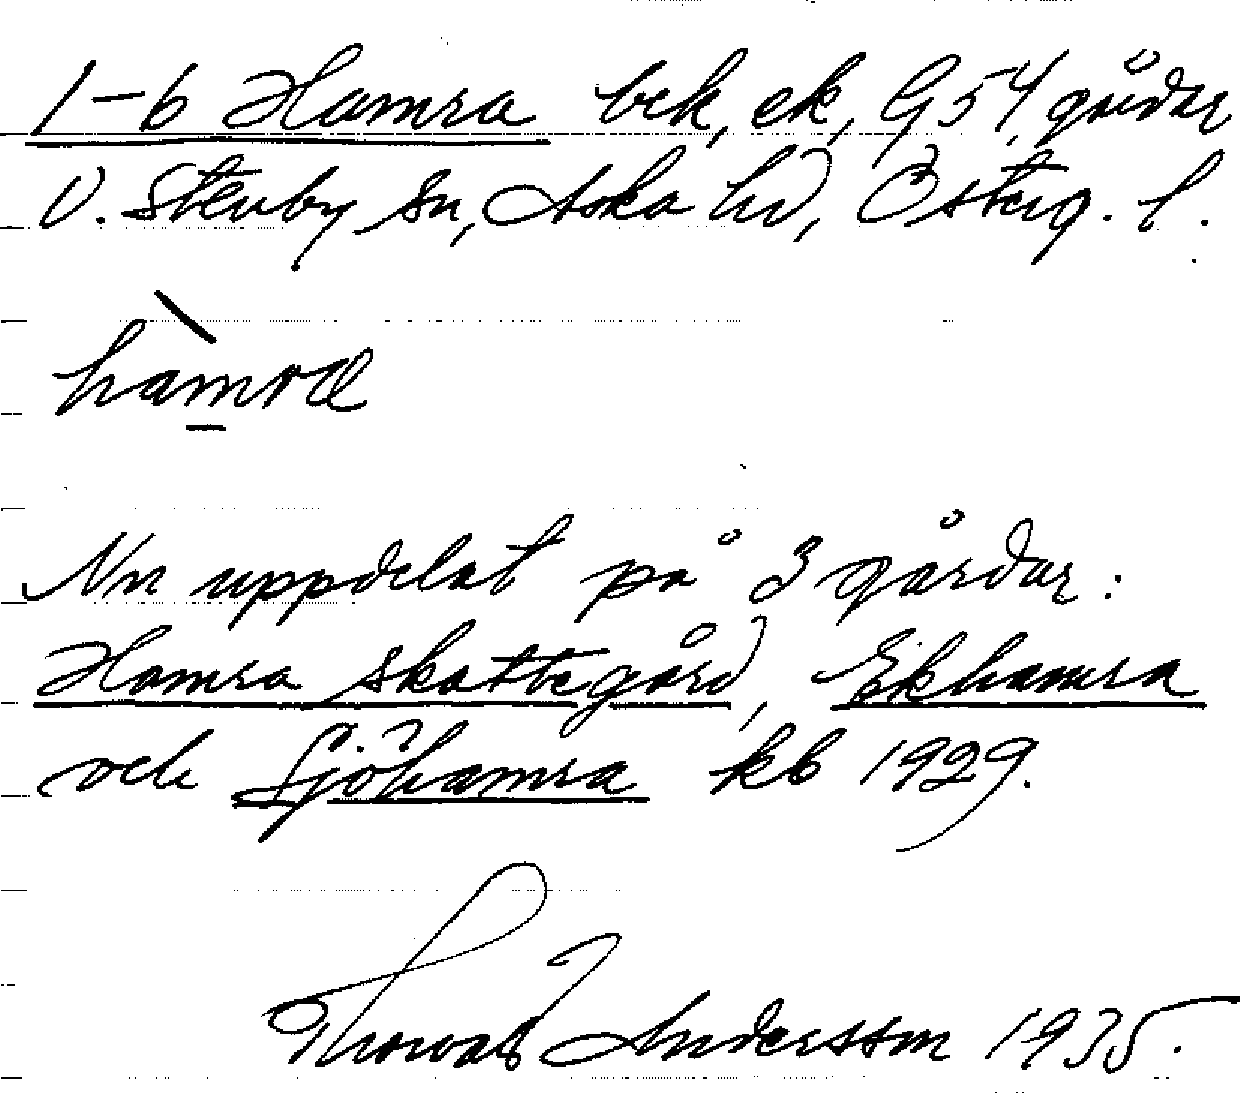 1-6 Hamra bck, ek, G54, gårdar
V. Stenby sn, Aska hd, Österg. l.
hàm̲ra
Nu uppdelat på 3 gårdar:
Hamra skattegård, Ekhamra
och Sjöhamra kb 1929.
Thorvald Andersson 1935.